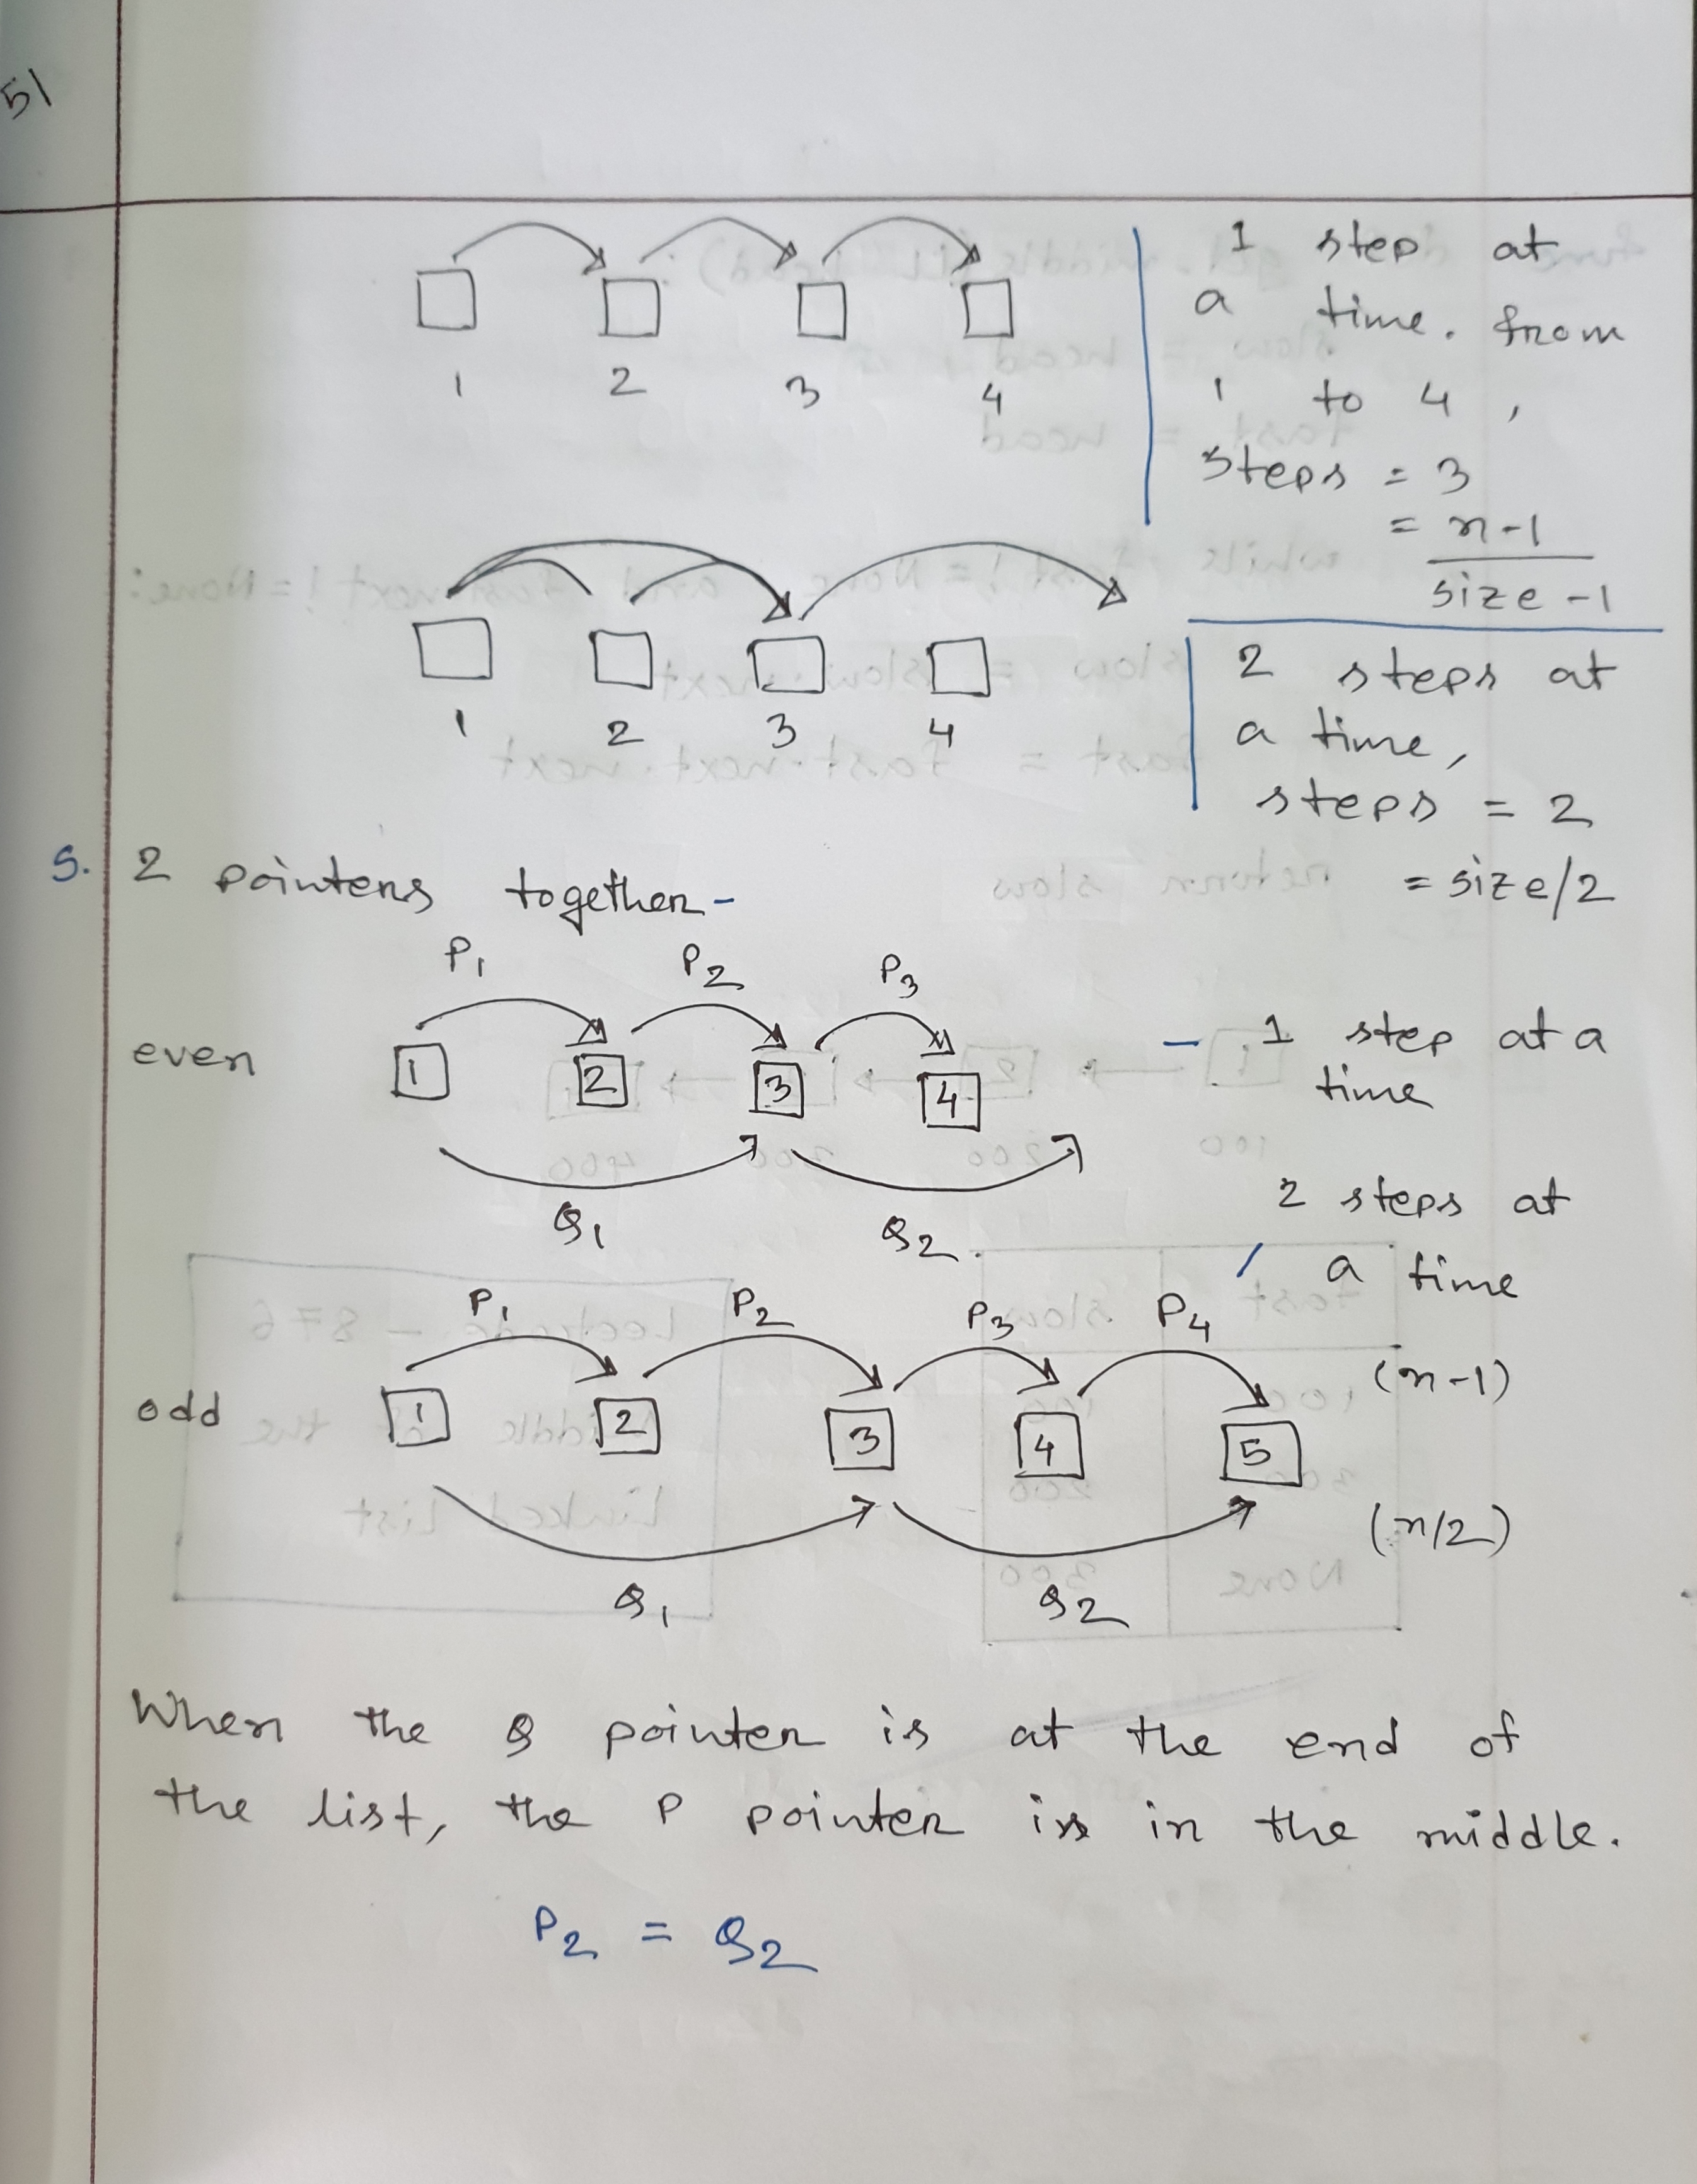 51
1 step at
a time. from
1 to 4,
steps = 3
= n-1
size -1
1 2 3 4
2 steps at
a time,
steps = 2
= size/2
1 2 3 4
5. 2 pointers together-
P1 P2 P3
even 1 2 3 4 - 1 step at a
time
Q1 Q2.
2 steps at
a time
P1 P2 P3 P4
(n-1)
odd 1 2 3 4 5
(n/2)
Q1 Q2
When the Q pointer is at the end of
the list, the P pointer is in the middle.
P2 = Q2